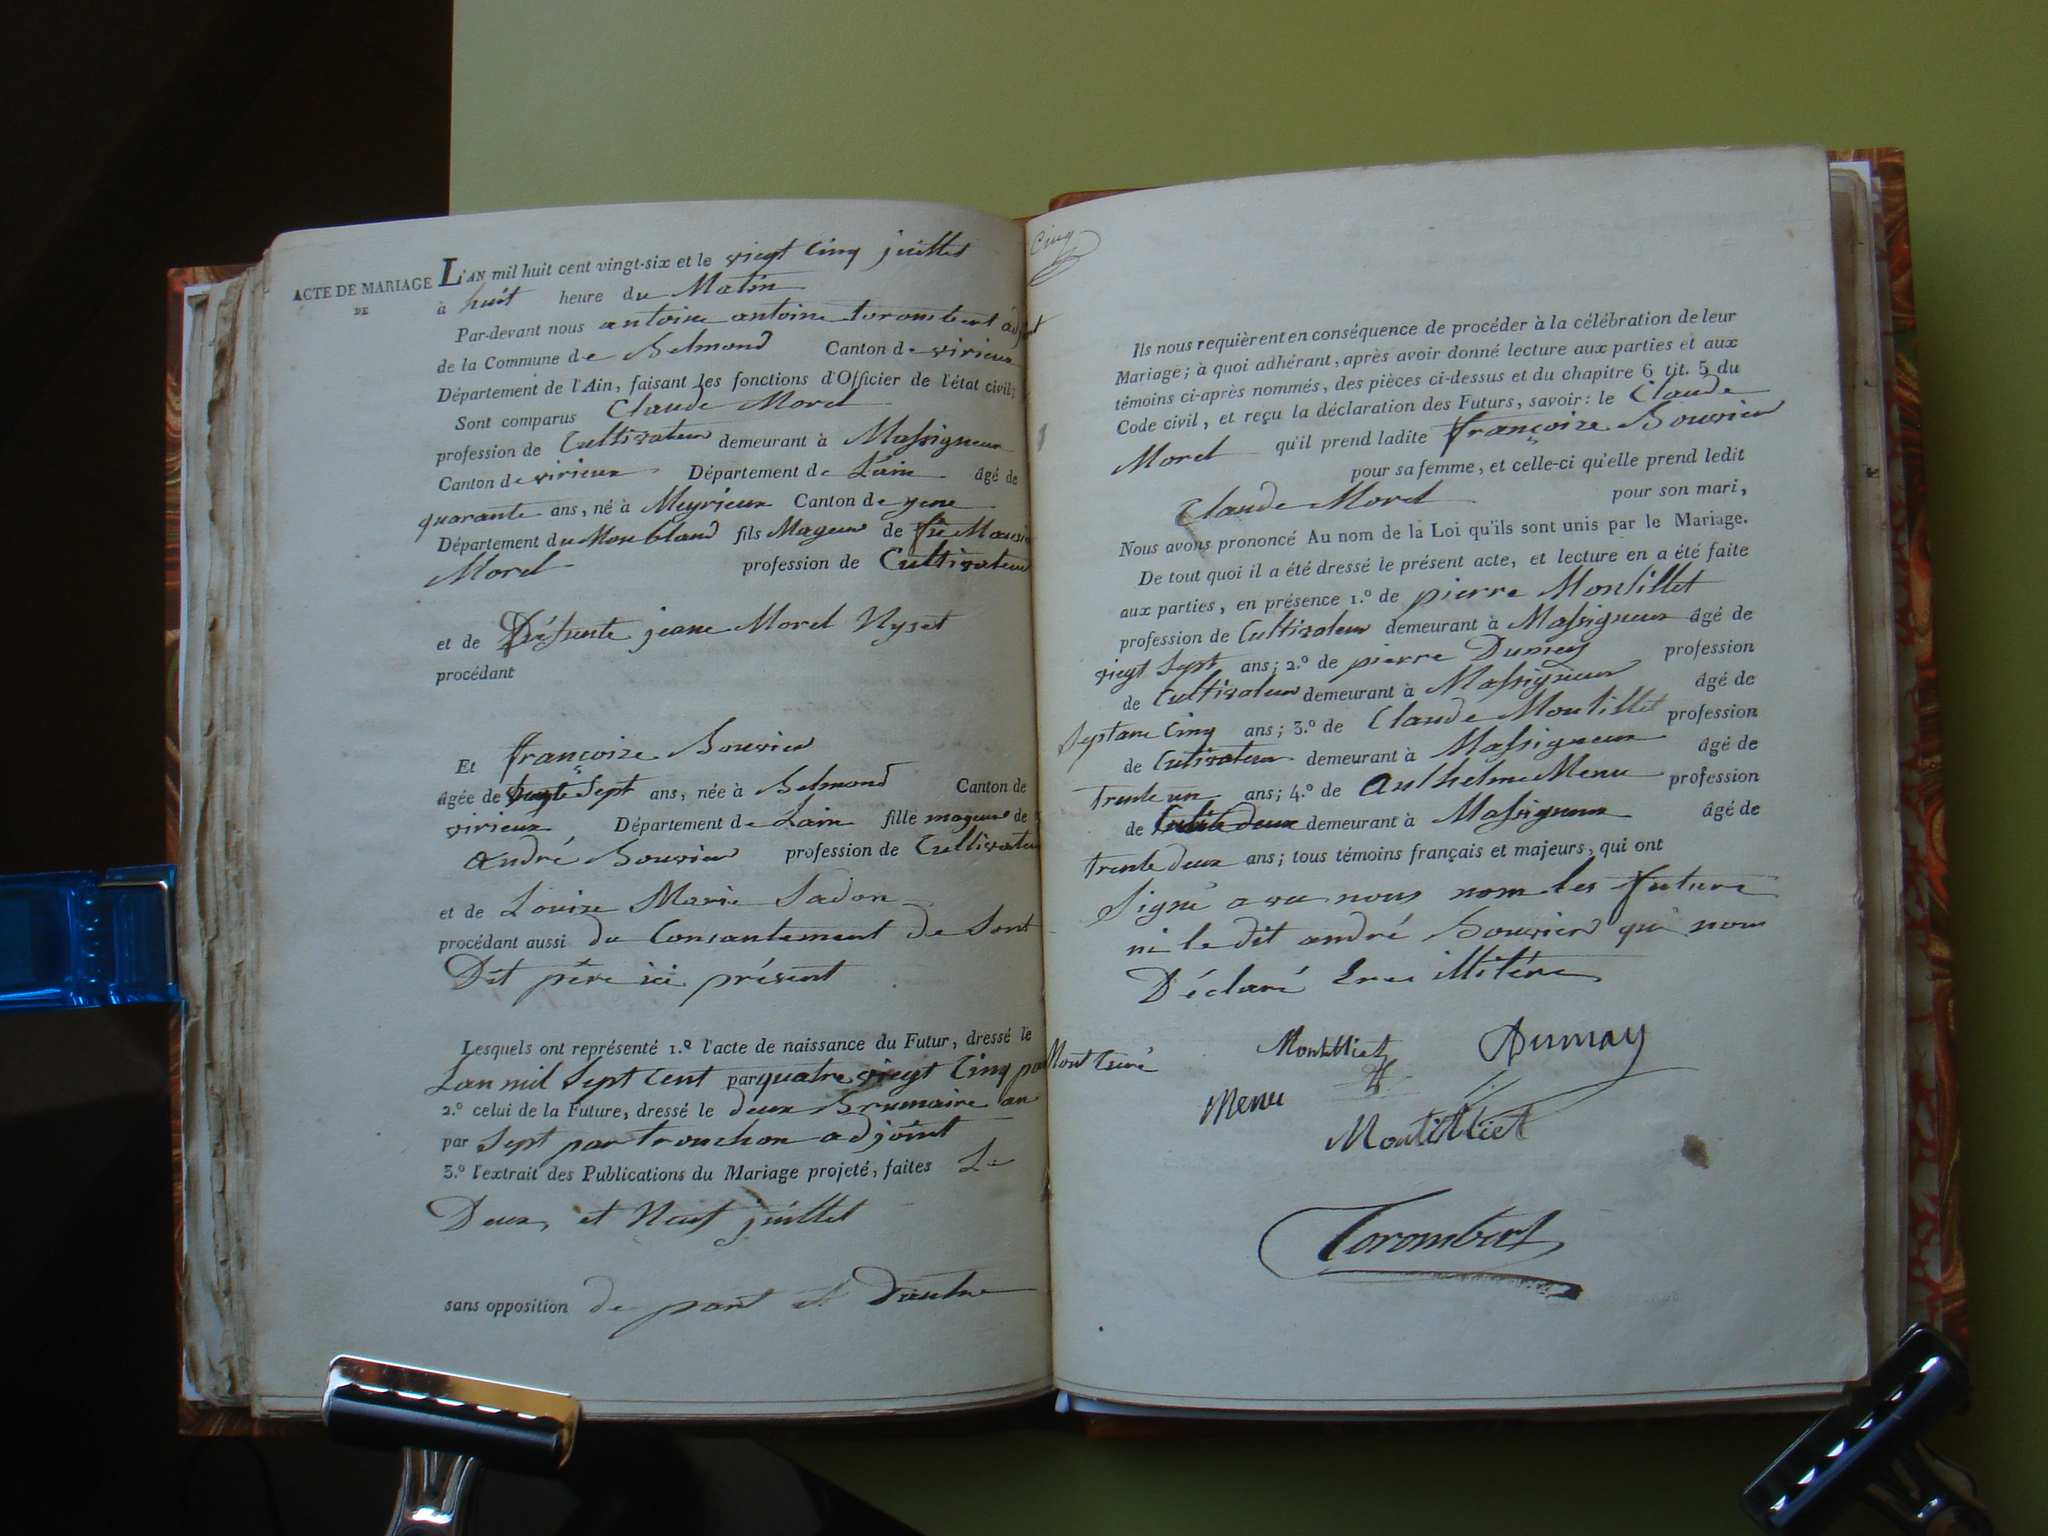 ACTE DE MARIAGE
DE
L'AN mil huit cent vingt-six et le viegt Cinq juillet
à huit heure du Matin
Par-devant nous antoine antoine torombert adjoint
de la Commune de Belmond Canton de virieux
Département de l'Ain, faisant les fonctions d'Officier de l'état civil;
Sont comparus Claude Morel
profession de Cultivateur demeurant à Massigneux
Canton de virieux Département de Lain âgé de
quarante ans, né à Meyrieux Canton de yene
Département du Monbland fils Mageur de
Morel profession de Cultivateur
et de Défunte jeane Morel Nyset
procédant
Et françoize Bouvier
âgée de Sept ans, née à Belmond Canton de
virieux Département de Lain fille mageure de
andré Bouvier profession de Cultivateur
et de Louize Marie Sadon
procédant aussi du Consantement de Sont
Dit père ici présent
Lesquels ont représenté 1.º l'acte de naissance du Futur, dressé le
Lan mil Sept Cent par quatre viegt Cinq par Mont Curé
2.º celui de la Future, dressé le deux Brumaire an
par Sept par trouchon adjoint
3.º l'extrait des Publications du Mariage projeté, faites Le
Deux et Neuf juillet
sans opposition de part et Dautre
Cinq
Ils nous requièrent en conséquence de procéder à la célébration de leur
Mariage; à quoi adhérant, après avoir donné lecture aux parties et aux
témoins ci-après nommés, des pièces ci-dessus et du chapitre 6 tit. 5 du
Code civil, et reçu la déclaration des Futurs, savoir: le Claude
Morel qu'il prend ladite françoize Bouvier
pour sa femme, et celle-ci qu'elle prend ledit
Claude Morel pour son mari,
Nous avons prononcé Au nom de la Loi qu'ils sont unis par le Mariage.
De tout quoi il a été dressé le présent acte, et lecture en a été faite
aux parties, en présence 1.º de pierre Montillet
profession de Cultivateur demeurant à Massigneux âgé de
viegt Sept ans; 2.º de pierre Dumey profession
de Cultivateur demeurant à Massigneux âgé de
Septane Cinq ans; 3.º de Claude Montillet profession
de Cultivateur demeurant à Massigneux âgé de
trente un ans; 4.º de Anthelme Menu profession
de demeurant à Massigneux âgé de
trente deux ans; tous témoins français et majeurs, qui ont
Signé avec nous nom les future
ni le dit andré Bouvier qui nom
Déclaré Etre illitére
Montilliet Dumay
Menu
Montilliet
Torombert